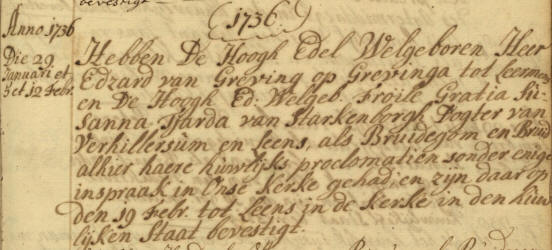 bevestigt
(1736)
Anno 1736
Die 29
Januari et
5 et 12 Febr.
Hebben De Hoogh Edel Welgeboren Heer
Edzard van Greving op Grevinga tot Leermens
en De Hoogh Ed: Welgeb. Froile Gratia Su-
sanna Tjarda van Starkenborgh Dogter van
Verhillersum en Leens, als Bruidegom en Bruid
alhier haere huwlijks proclamatien sonder enige
inspraak in Onse Kerke gehad, en zijn daar op
den 19 Febr. tot Leens in de Kerke in den huw
lijken Staat bevestigt.